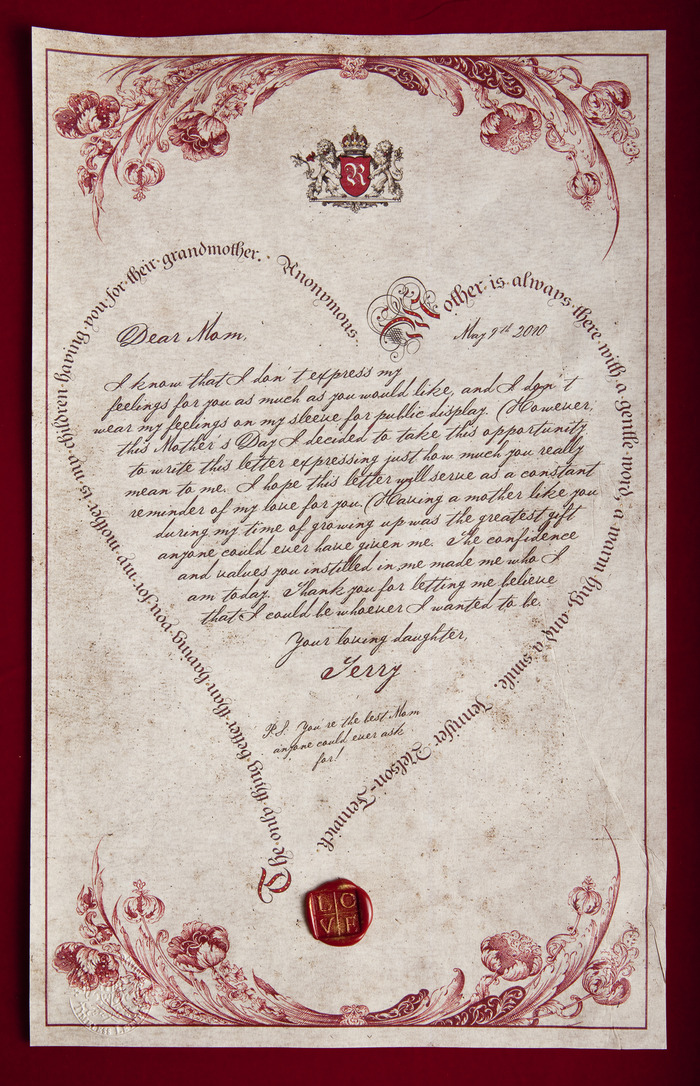 R
Mother is always there with a gentle word, a warm hug, and a smile. Jennifer Nelson-Fenwick.
The only thing better than having you for my mother is my children having you for their grandmother. Anonymous.
Dear Mom,
May 9th 2010
I know that I don't express my
feelings for you as much as you would like, and I don't
wear my feelings on my sleeve for public display. However,
this Mother's Day I decided to take this opportunity
to write this letter expressing just how much you really
mean to me. I hope this letter will serve as a constant
reminder of my love for you. Having a mother like you
during my time of growing up was the greatest gift
anyone could ever have given me. The confidence
and values you instilled in me made me who I
am today. Thank you for letting me believe
that I could be whoever I wanted to be.
Your loving daughter,
Terry
P.S. You're the best Mom
anyone could ever ask
for!
LO
VE